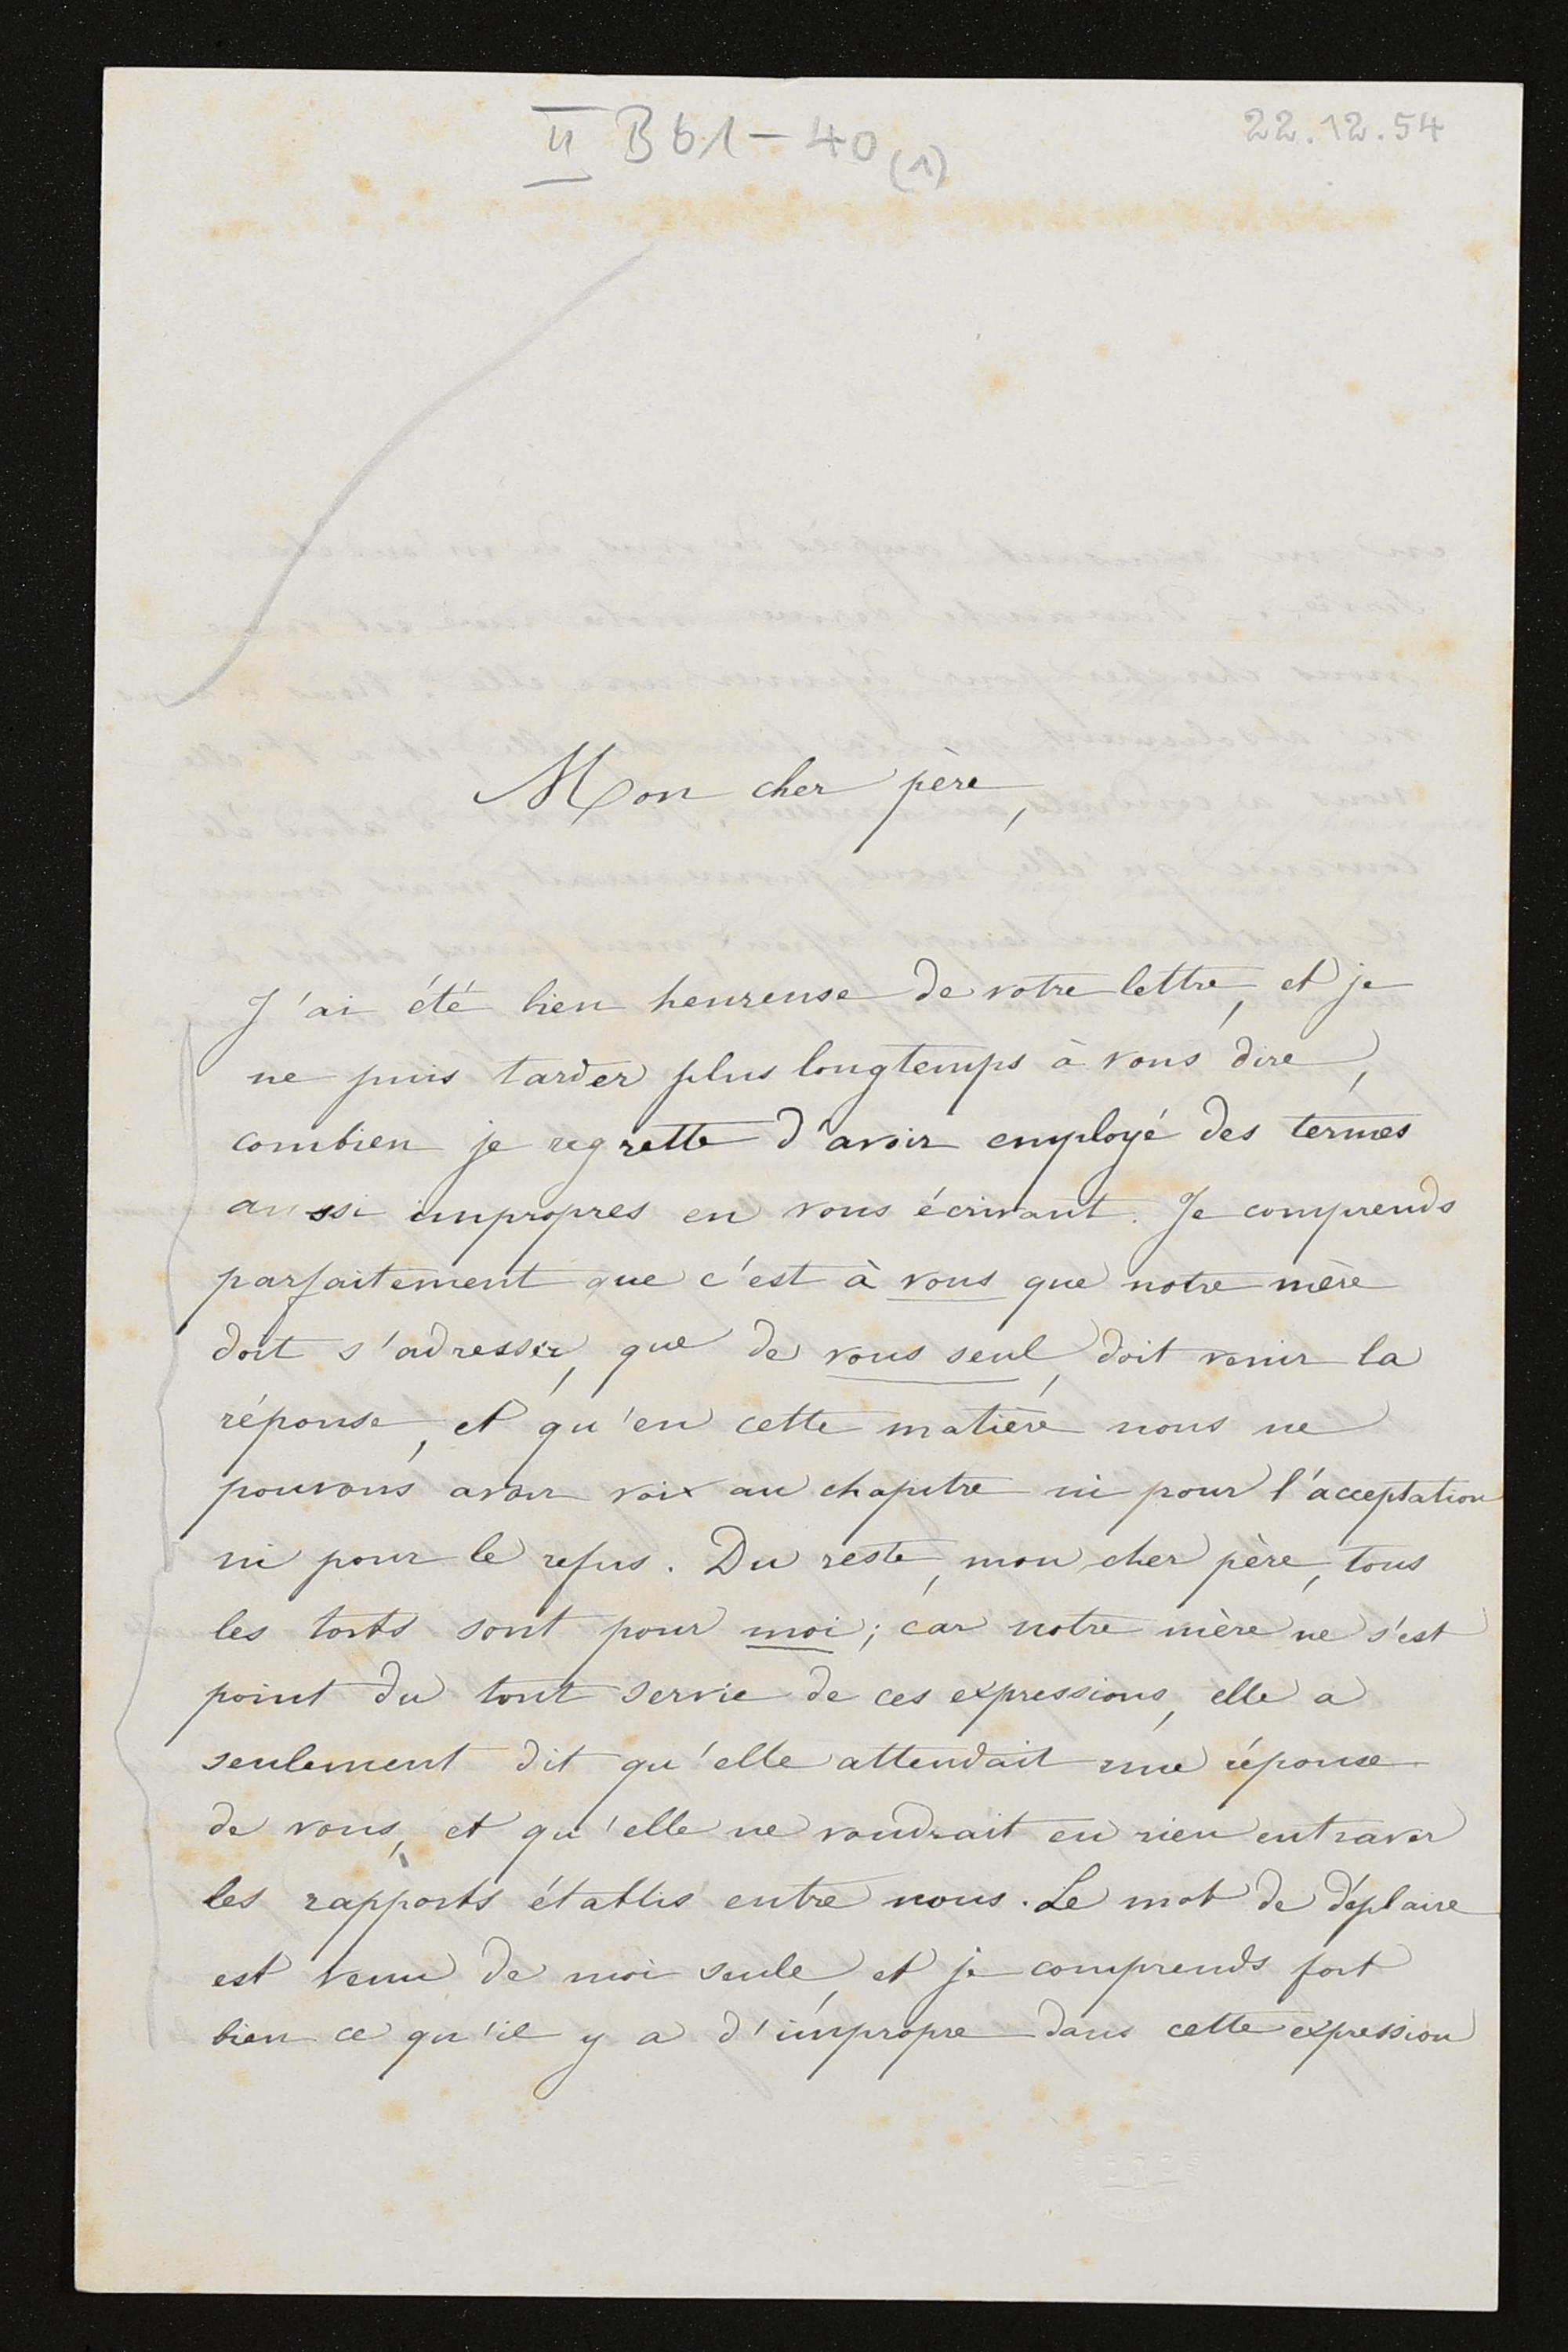 II B 61 - 40 (1)
22.12.54
Mon cher père,
J'ai été bien heureuse de votre lettre, et je
ne puis tarder plus longtemps à vous dire,
combien je regrette d'avoir employé des termes
aussi impropres en vous écrivant. Je comprends
parfaitement que c'est à vous que notre mère
doit s'adresser, que de vous seul, doit venir la
réponse, et qu'en cette matière nous ne
pouvons avoir voix au chapitre ni pour l'acceptation
ni pour le refus. Du reste, mon cher père, tous
les torts sont pour moi; car notre mère ne s'est
point du tout servie de ces expressions, elle a
seulement dit qu'elle attendait une réponse
de vous, et qu'elle ne voudrait en rien entraver
les rapports établis entre nous. Le mot de déplaire
est venu de moi seule, et je comprends fort
bien ce qu'il y a d'impropre dans cette expression